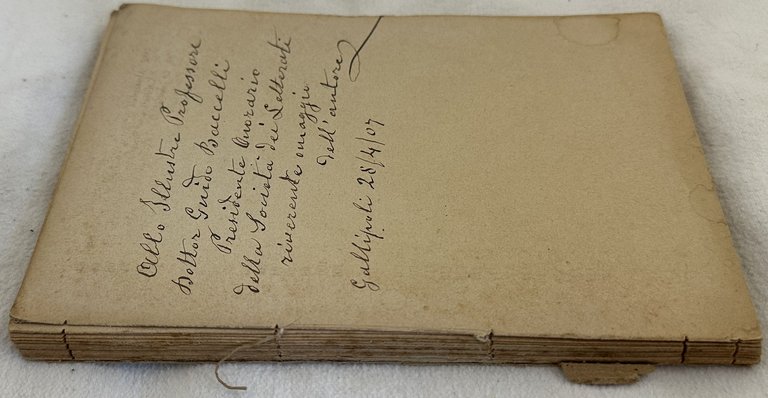 Allo Illustre Professore
Dottor Guido Baccelli
Presidente Onorario
della Società dei Letterati
riverente omaggio
dell'autore
Gallipoli 28/4/07